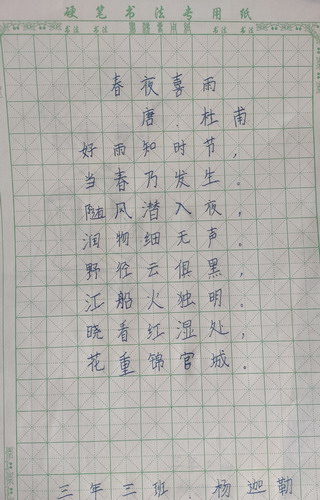 硬笔书法专用纸
春夜喜雨
唐.杜甫
好雨知时节，
当春乃发生。
随风潜入夜，
润物细无声。
野径云俱黑，
江船火独明。
晓看红湿处，
花重锦官城。
三年三班.杨迦勒